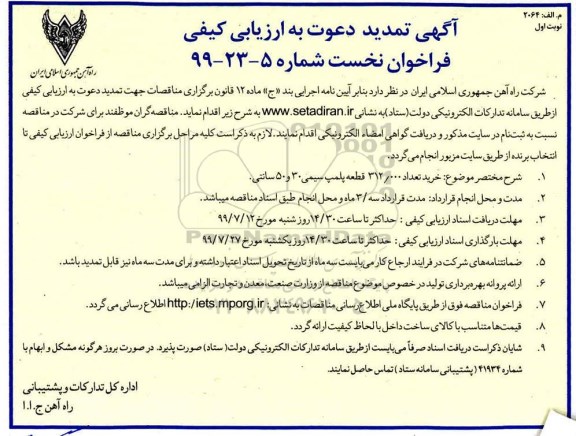 م. الف: ۲۰۶۴
نوبت اول
آگهی تمدید دعوت به ارزیابی کیفی
فراخوان نخست شماره ۵-۲۳-۹۹
راه‌آهن جمهوری اسلامی ایران
شرکت راه آهن جمهوری اسلامی ایران در نظر دارد بنابر آیین نامه اجرایی بند «ج» ماده ۱۲ قانون برگزاری مناقصات جهت تمدید دعوت به ارزیابی کیفی
ازطریق سامانه تدارکات الکترونیکی دولت(ستاد)به نشانی www.setadiran.ir به شرح زیر اقدام نماید. مناقصه‌گران موظفند برای شرکت در مناقصه
نسبت به ثبت‌نام در سایت مذکور و دریافت گواهی امضاء الکترونیکی اقدام نمایند. لازم به ذکراست کلیه مراحل برگزاری مناقصه از فراخوان ارزیابی کیفی تا
انتخاب برنده از طریق سایت مزبور انجام می‌گردد.
۱. شرح مختصر موضوع: خرید تعداد ۳۱۲٫۰۰۰ قطعه پلمپ سیمی ۳۰ و ۵۰ سانتی.
۲. مدت و محل انجام قرارداد: مدت قرارداد سه /۳ ماه و محل انجام طبق اسناد مناقصه میباشد.
۳. مهلت دریافت اسناد ارزیابی کیفی : حداکثر تا ساعت ۱۴/۳۰ روز شنبه مورخ ۹۹/۷/۱۲
۴. مهلت بارگذاری اسناد ارزیابی کیفی : حداکثر تا ساعت ۱۴/۳۰ روز یکشنبه مورخ ۹۹/۷/۲۷
۵. ضمانتنامه‌های شرکت در فرایند ارجاع کار می‌بایست سه ماه از تاریخ تحویل اسناد اعتبار داشته و برای مدت سه ماه نیز قابل تمدید باشد.
۶. ارائه پروانه بهره‌برداری تولید در خصوص موضوع مناقصه از وزارت صنعت، معدن و تجارت الزامی میباشد.
۷. فراخوان مناقصه فوق از طریق پایگاه ملی اطلاع رسانی مناقصات به نشانی: http:/iets.mporg.ir اطلاع رسانی می گردد.
۸. قیمت‌ها متناسب با کالای ساخت داخل با لحاظ کیفیت ارائه گردد.
۹. شایان ذکراست دریافت اسناد صرفاً می‌بایست ازطریق سامانه تدارکات الکترونیکی دولت( ستاد) صورت پذیرد. در صورت بروز هرگونه مشکل و ابهام با
شماره ۴۱۹۳۴ (پشتیبانی سامانه ستاد ) تماس حاصل نمایند.
اداره کل تدارکات و پشتیبانی
راه آهن ج.ا.ا